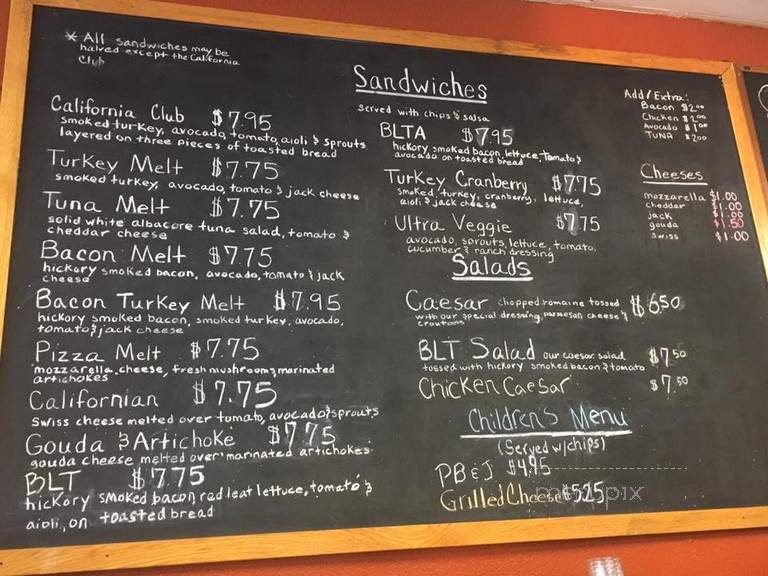 * All sandwiches may be
halved except the California
Club
Sandwiches
served with chips & salsa
California Club $7.95
smoked turkey, avocado, tomato, aioli & sprouts
layered on three pieces of toasted bread
Turkey Melt $7.75
smoked turkey, avocado, tomato & jack cheese
Tuna Melt $7.75
solid white albacore tuna salad, tomato &
cheddar cheese
Bacon Melt $7.75
hickory smoked bacon, avocado, tomato & jack
cheese
Bacon Turkey Melt $7.95
hickory smoked bacon, smoked turkey, avocado,
tomato & jack cheese
Pizza Melt $7.75
mozzarella cheese, fresh mushrooms, marinated
artichokes
Californian $7.75
Swiss cheese melted over tomato, avocado & sprouts
Gouda & Artichoke $7.75
gouda cheese melted over marinated artichokes
BLT $7.75
hickory smoked bacon, red leaf lettuce, tomato &
aioli, on toasted bread
BLTA $7.95
hickory smoked bacon, lettuce, tomato &
avocado on toasted bread
Turkey Cranberry $7.75
smoked turkey, cranberry, lettuce,
aioli & jack cheese
Ultra Veggie $7.75
avocado, sprouts, lettuce, tomato,
cucumber & ranch dressing
Salads
Caesar chopped romaine tossed $6.50
with our special dressing, parmesan cheese &
croutons
BLT Salad our caesar salad $7.50
tossed with hickory smoked bacon & tomato
Chicken Caesar $7.50
Children's Menu
(Served w/chips)
PB & J $4.95
Grilled Cheese $5.25
Add/Extra:
Bacon $2.00
Chicken $1.00
Avocado $1.00
TUNA $2.00
Cheeses
mozzarella $1.00
cheddar $1.00
jack $1.00
gouda $1.50
swiss $1.00